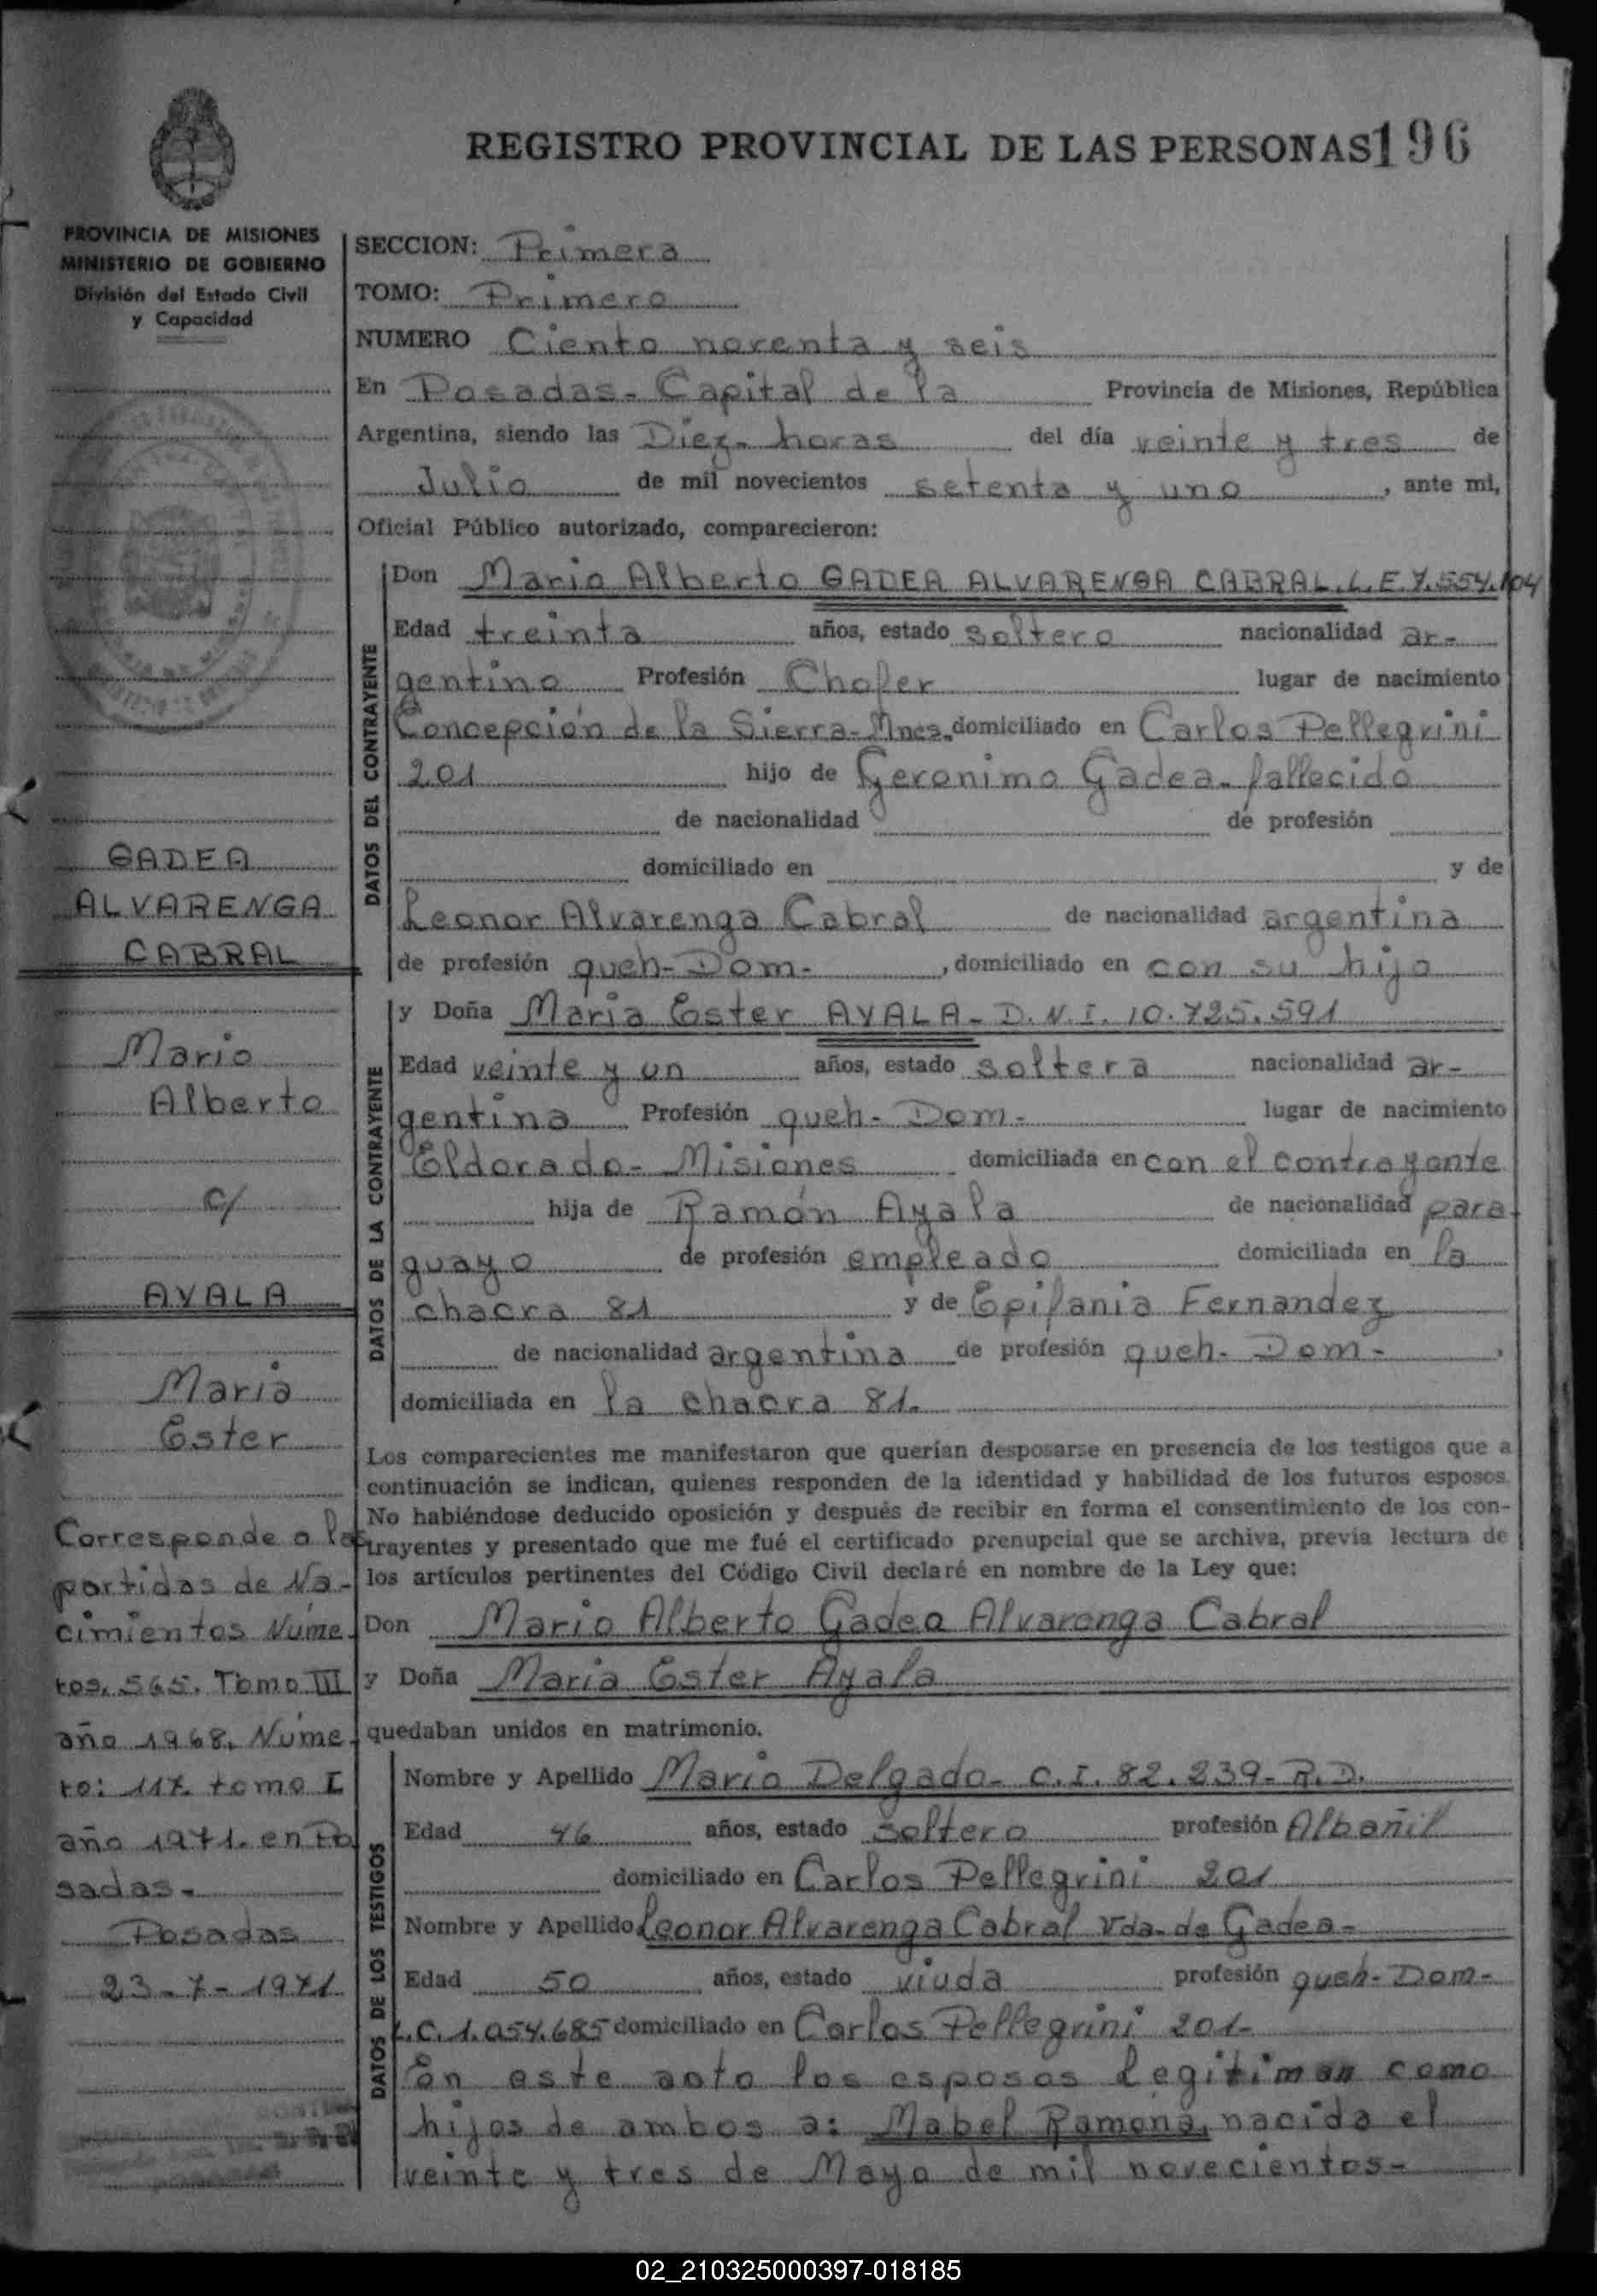 REGISTRO PROVINCIAL DE LAS PERSONAS 196
PROVINCIA DE MISIONES
MINISTERIO DE GOBIERNO
División del Estado Civil
y Capacidad
SECCION: Primera
TOMO: Primero
NUMERO Ciento noventa y seis
En Posadas- Capital de la Provincia de Misiones, República
Argentina, siendo las Diez- horas del día veinte y tres de
Julio de mil novecientos setenta y uno, ante mi,
Oficial Público autorizado, comparecieron:
DATOS DEL CONTRAYENTE
Don Mario Alberto GADEA ALVARENGA CABRAL. L.E. 7.554.104
Edad treinta años, estado soltero nacionalidad ar-
gentino Profesión Chofer lugar de nacimiento
Concepción de la Sierra- Mnes. domiciliado en Carlos Pellegrini
201 hijo de Geronimo Gadea- fallecido
de nacionalidad de profesión
domiciliado en y de
Leonor Alvarenga Cabral de nacionalidad argentina
de profesión queh- Dom-, domiciliado en con su hijo
DATOS DE LA CONTRAYENTE
y Doña Maria Ester AYALA- D.N.I. 10.725.591
Edad veinte y un años, estado soltera nacionalidad ar-
gentina Profesión queh- Dom- lugar de nacimiento
Eldorado- Misiones domiciliada en con el contrayente
hija de Ramón Ayala de nacionalidad para
guayo de profesión empleado domiciliada en la
chacra 81 y de Epifania Fernandez
de nacionalidad argentina de profesión queh- Dom-,
domiciliada en la chacra 81.
Los comparecientes me manifestaron que querían desposarse en presencia de los testigos que a
continuación se indican, quienes responden de la identidad y habilidad de los futuros esposos.
No habiéndose deducido oposición y después de recibir en forma el consentimiento de los con-
trayentes y presentado que me fué el certificado prenupcial que se archiva, previa lectura de
los artículos pertinentes del Código Civil declaré en nombre de la Ley que:
Don Mario Alberto Gadea Alvarenga Cabral
y Doña Maria Ester Ayala
quedaban unidos en matrimonio.
DATOS DE LOS TESTIGOS
Nombre y Apellido Mario Delgado- C.I. 82.239- R.D.
Edad 46 años, estado soltero profesión Albañil
domiciliado en Carlos Pellegrini 201
Nombre y Apellido Leonor Alvarenga Cabral Vda- de Gadea-
Edad 50 años, estado viuda profesión queh- Dom-
L.C. 1.054.685 domiciliado en Carlos Pellegrini 201-
En este acto los esposos legitiman como
hijos de ambos a: Mabel Ramona, nacida el
veinte y tres de Mayo de mil novecientos-
GADEA
ALVARENGA
CABRAL
Mario
Alberto
c/
AYALA
Maria
Ester
Corresponde a las
partidas de Na-
cimientos Núme
ros. 565. Tomo III
año 1968. Núme
ro: 117. tomo I
año 1971. en Po
sadas-
Posadas
23-7-1971
02_210325000397-018185